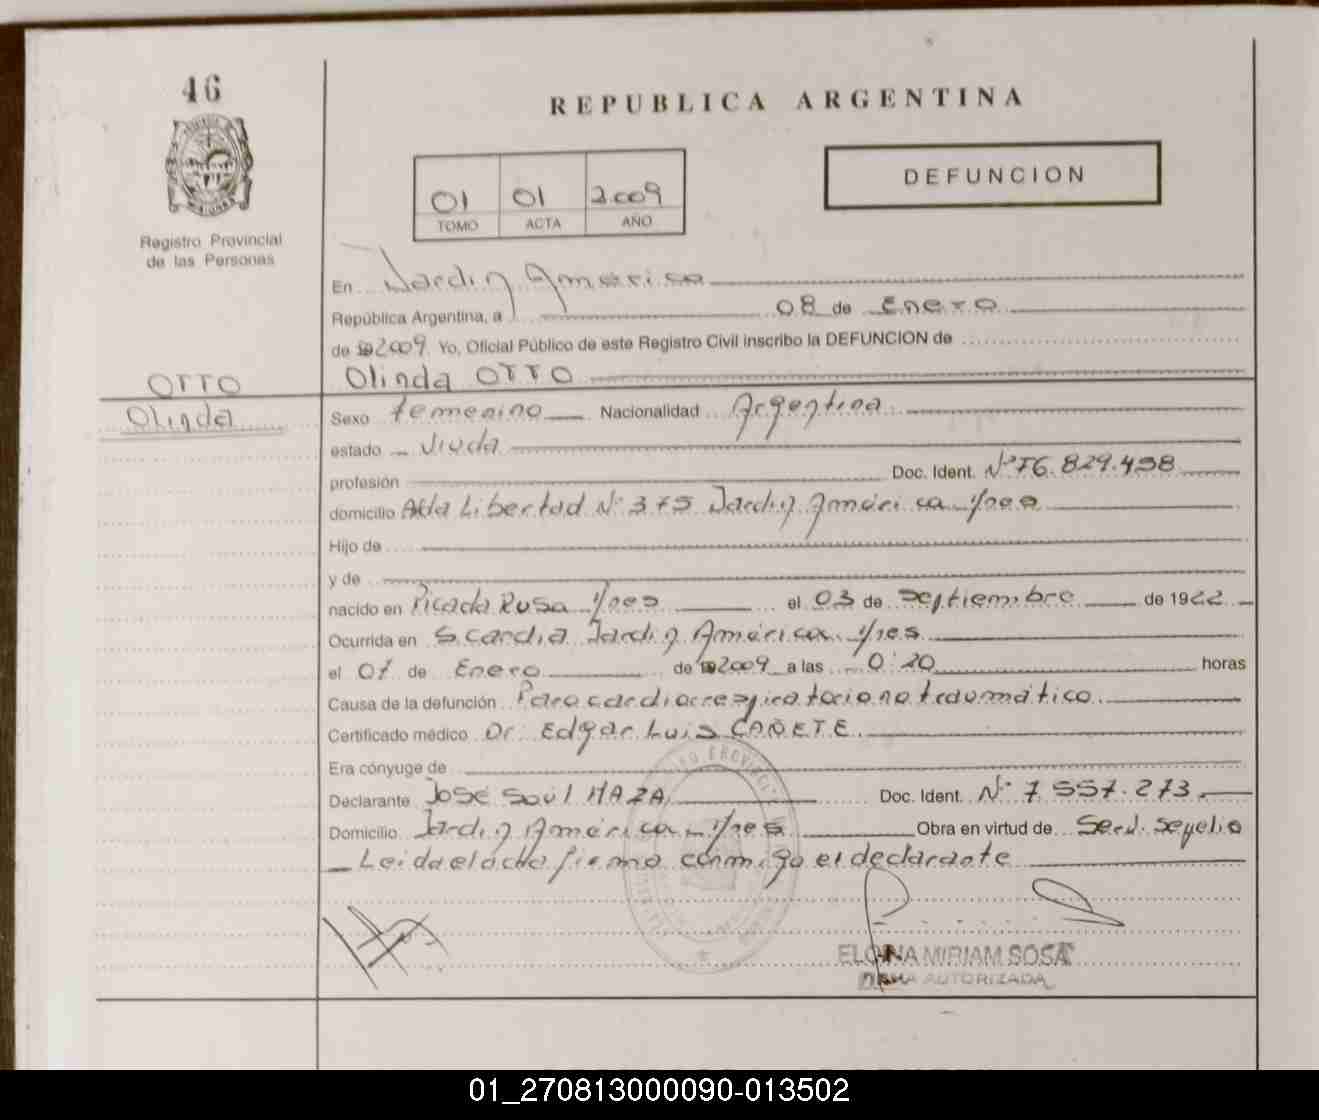 46
REPUBLICA ARGENTINA
01 01 2009
TOMO ACTA AÑO
DEFUNCION
Registro Provincial
de las Personas
En Jardin America
República Argentina, a 08 de Enero
de 2009 Yo, Oficial Público de este Registro Civil inscribo la DEFUNCION de
OTTO
Olinda OTTO
Olinda
Sexo femenino Nacionalidad Argentina
estado Viuda
profesión Doc. Ident. Nº 6.829.498
domicilio Avda Libertad Nº 375 Jardin América Mnes
Hijo de
y de
nacido en Picada Rusa Mnes el 03 de Septiembre de 1922
Ocurrida en S. cardia Jardin América Mnes
el 07 de Enero de 2009 a las 0:20 horas
Causa de la defunción Paro cardiorrespiratorio no traumático
Certificado médico Dr. Edgar Luis CAÑETE
Era cónyuge de
Declarante José Saúl MAZA Doc. Ident. Nº 7.557.273
Domicilio Jardin América Mnes Obra en virtud de Serv. Sepelio
Leida el acta firma conmigo el declarante
MIRIAM SOSA
AUTORIZADA
01_270813000090-013502